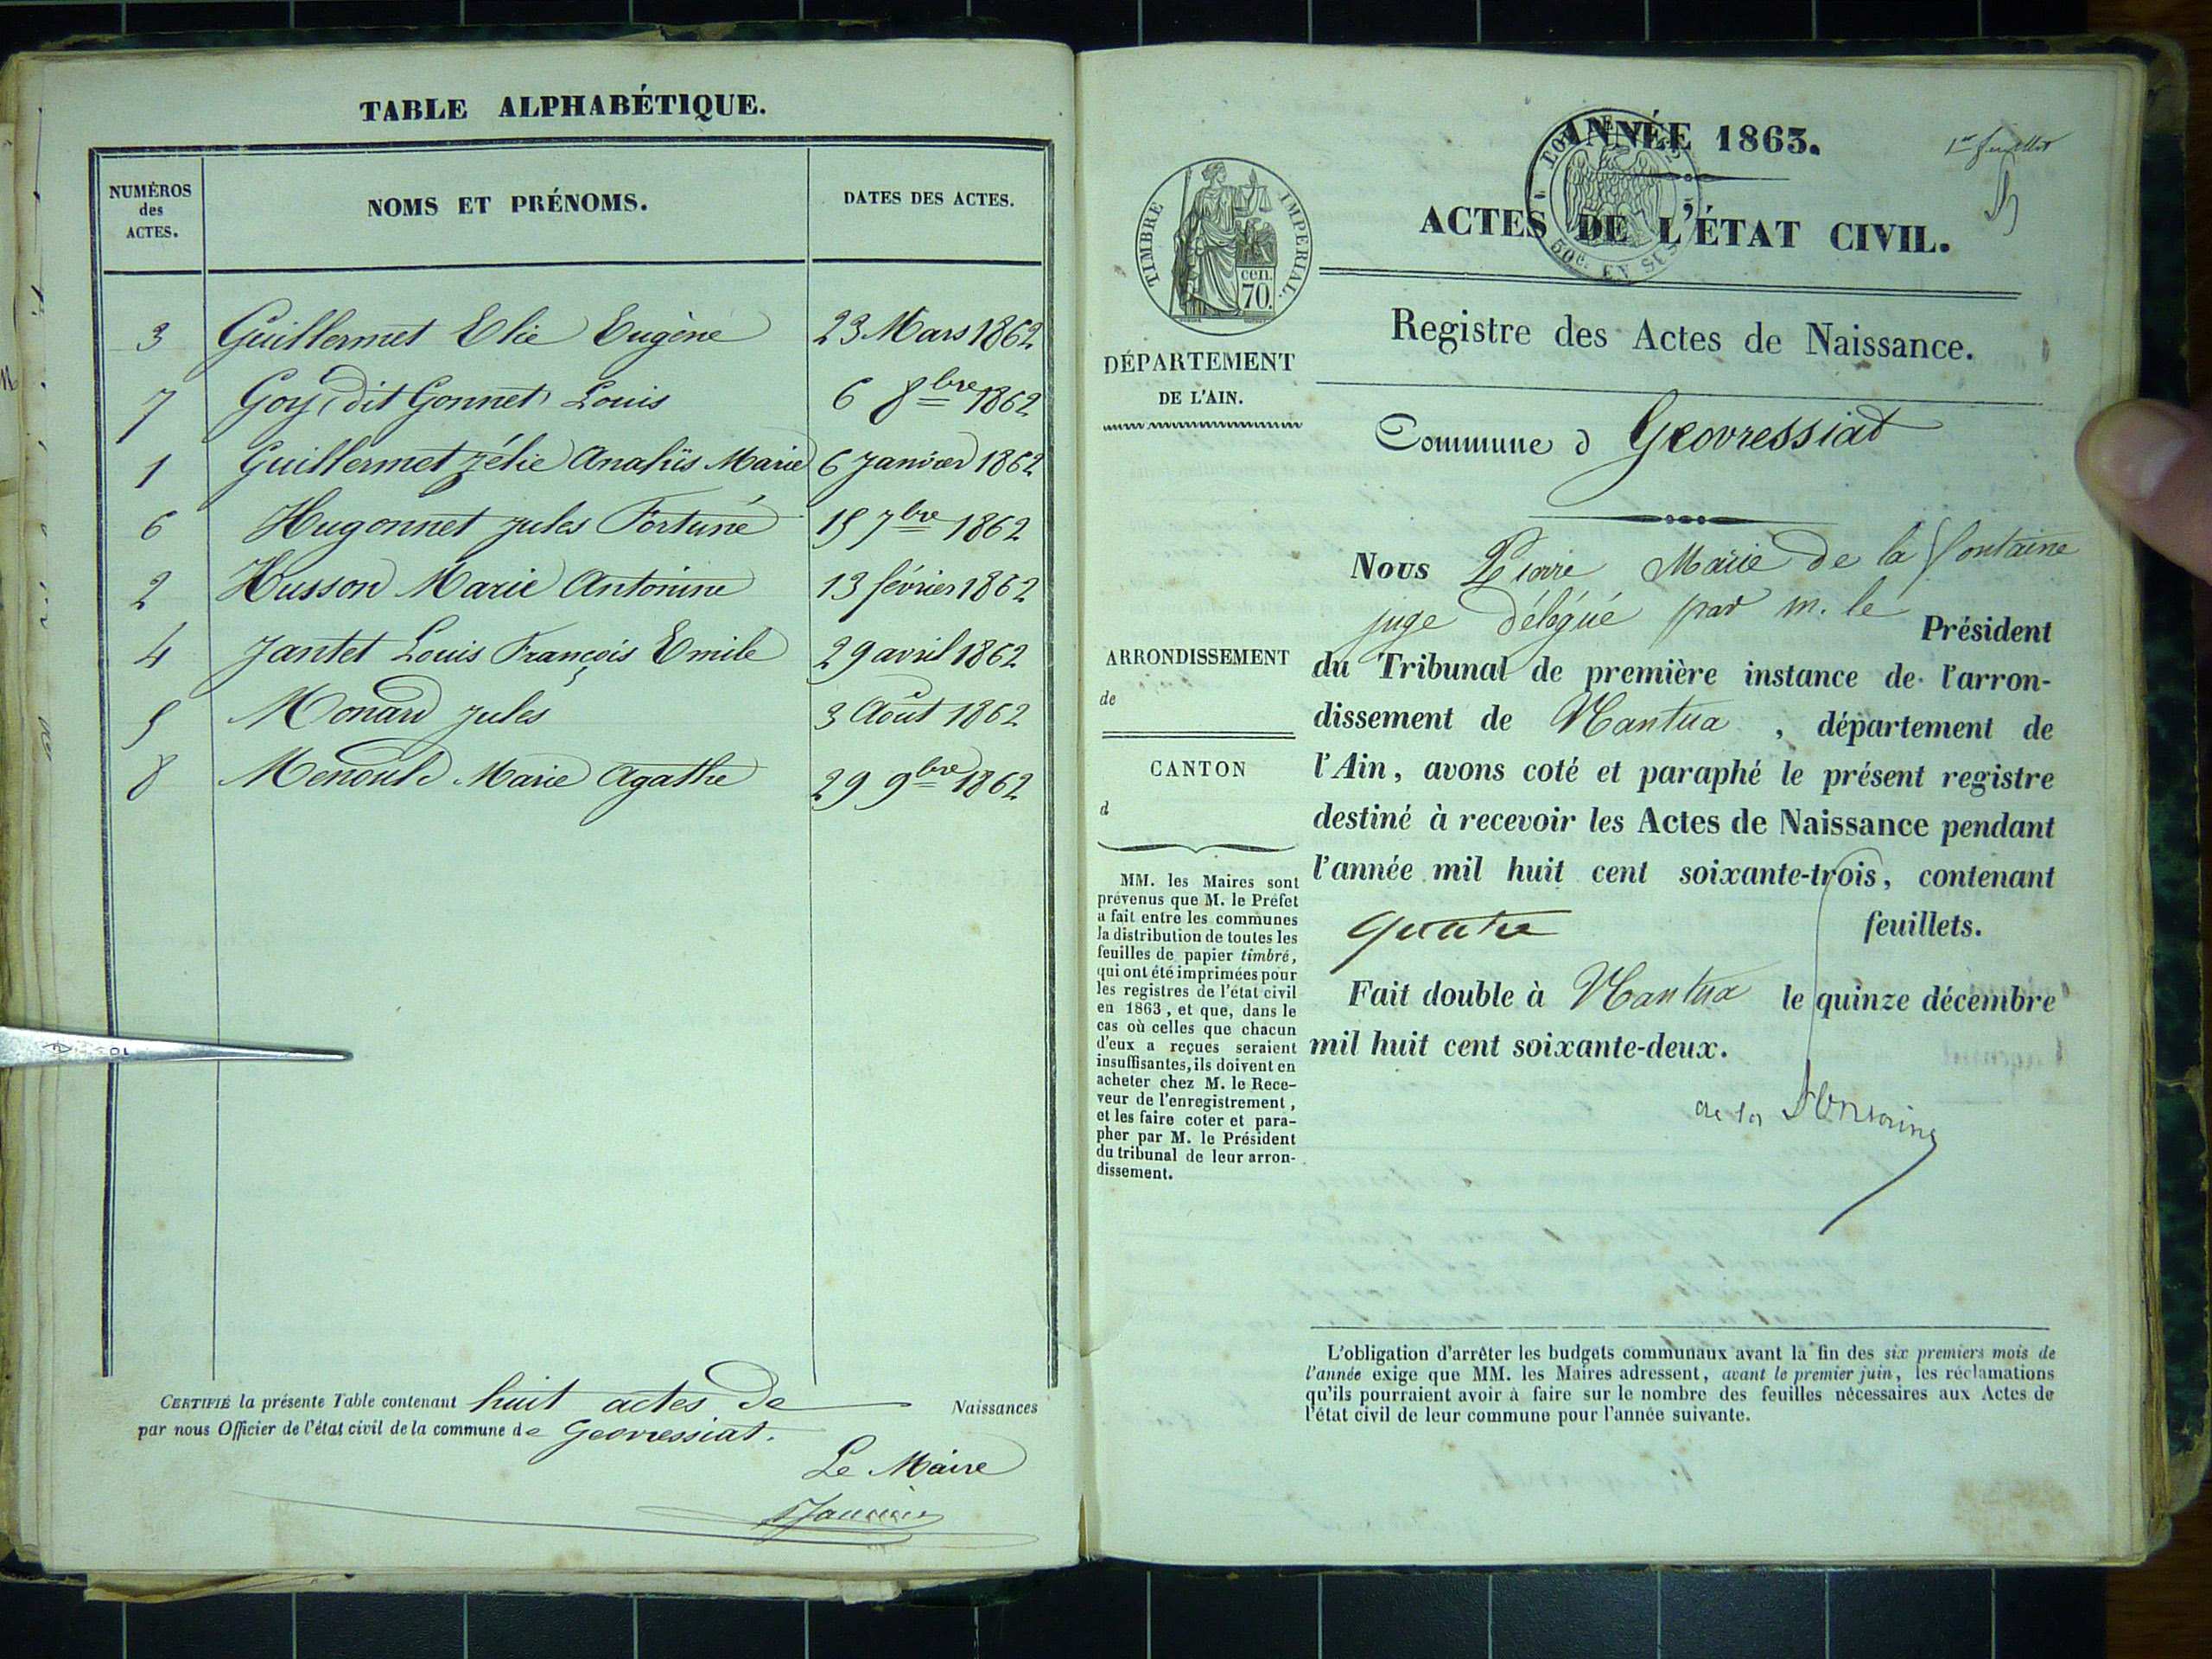 TABLE ALPHABÉTIQUE.
NUMÉROS des ACTES. NOMS ET PRÉNOMS. DATES DES ACTES.
3 Guillermet Elie Eugène 23 Mars 1862
7 Goy (dit Gonnet) Louis 6 8bre 1862
1 Guillermet Zélie Anaïs Marie 6 Janvier 1862
6 Hugonnet Jules Fortuné 15 7bre 1862
2 Husson Marie Antonine 13 février 1862
4 Jantet Louis François Emile 29 avril 1862
5 Monard Jules 3 Août 1862
8 Menould Marie Agathe 29 9bre 1862
CERTIFIÉ la présente Table contenant huit actes de Naissances
par nous Officier de l'état civil de la commune de Geovressiat.
Le Maire
1er feuillet
ANNÉE 1863.
ACTES DE L'ÉTAT CIVIL.
50c. EN SUS
TIMBRE IMPERIAL.
cen.
70.
DÉPARTEMENT
DE L'AIN.
ARRONDISSEMENT
de
CANTON
d
MM. les Maires sont
prévenus que M. le Préfet
a fait entre les communes
la distribution de toutes les
feuilles de papier timbré,
qui ont été imprimées pour
les registres de l'état civil
en 1863, et que, dans le
cas où celles que chacun
d'eux a reçues seraient
insuffisantes, ils doivent en
acheter chez M. le Rece-
veur de l'enregistrement,
et les faire coter et para-
pher par M. le Président
du tribunal de leur arron-
dissement.
Registre des Actes de Naissance.
Commune d Geovressiat
Nous Pierre Marie de la fontaine
juge délégué par m. le Président
du Tribunal de première instance de l'arron-
dissement de Nantua, département de
l'Ain, avons coté et paraphé le présent registre
destiné à recevoir les Actes de Naissance pendant
l'année mil huit cent soixante-trois, contenant
quatre feuillets.
Fait double à Nantua le quinze décembre
mil huit cent soixante-deux.
de la fontaine
L'obligation d'arrêter les budgets communaux avant la fin des six premiers mois de
l'année exige que MM. les Maires adressent, avant le premier juin, les réclamations
qu'ils pourraient avoir à faire sur le nombre des feuilles nécessaires aux Actes de
l'état civil de leur commune pour l'année suivante.